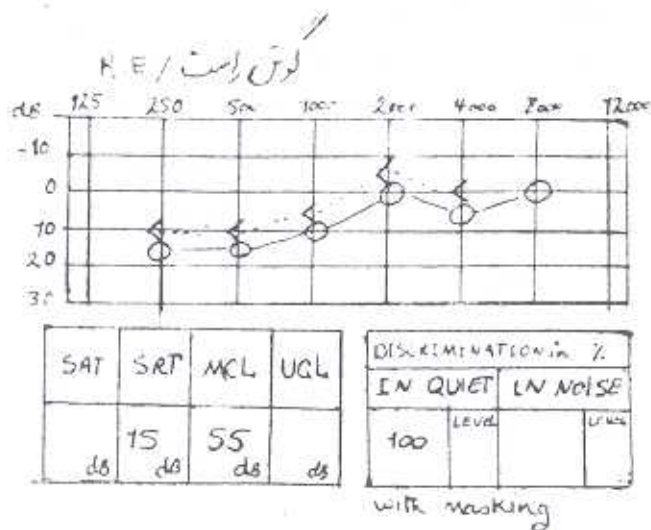 گوش راست / R.E
dB 125 250 500 1000 2000 4000 8000 12000
-10
0
10
20
30
SAT SRT MCL UCL
dB 15 dB 55 dB dB
DISCRIMINATION in %
IN QUIET IN NOISE
100 LEVEL LEVEL
with masking